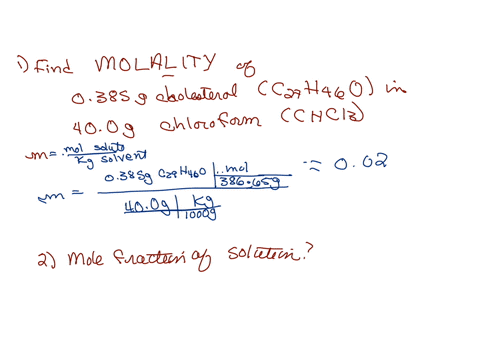 1) Find MOLALITY of
0.385g cholesterol (C27H46O) in
40.0g chloroform (CHCl3)
m = mol solute
Kg solvent
m = 0.385g C27H46O | mol
386.65g
40.0g | Kg
1000g
≈ 0.02
2) Mole fraction of solution?